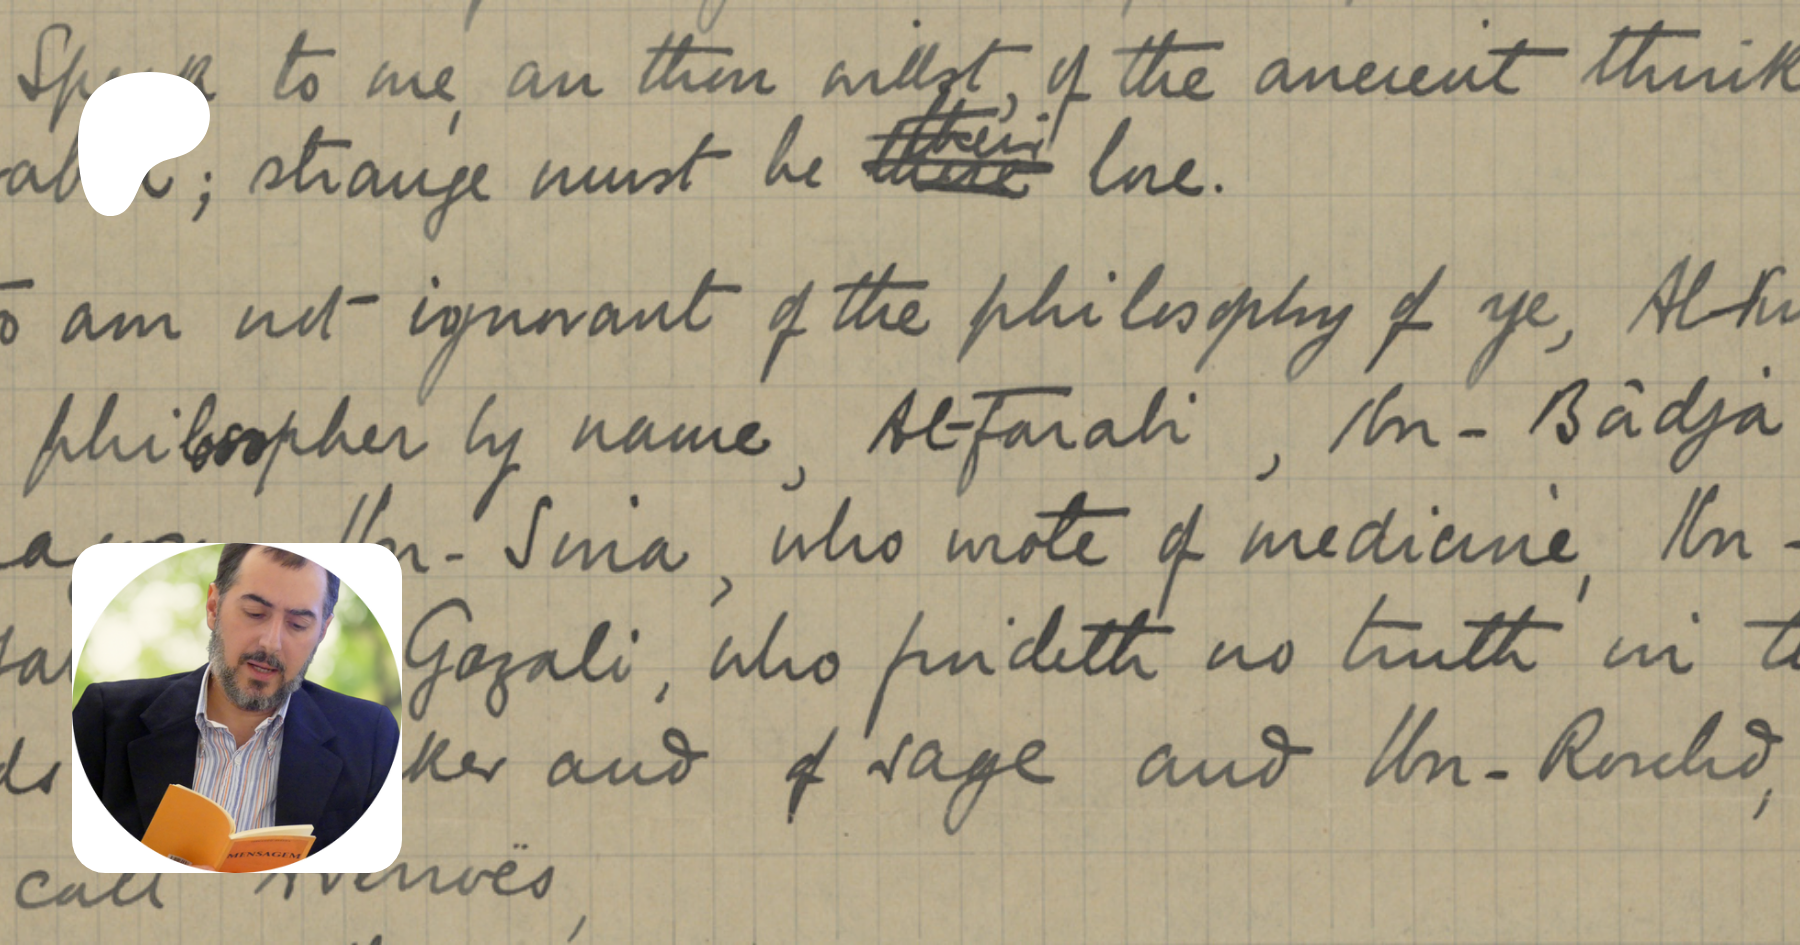 to me, an thou willst, of the ancient think
; strange must be their lore.
am not ignorant of the philosophy of ye,
philosopher by name, Al-Farabi, Ibn-Bâdja
Ibn-Sina, who wrote of medicine, Ibn-
Gazali, who findeth no truth in
and of sage and Ibn-Roschd,
call Averroës,
MENSAGEM